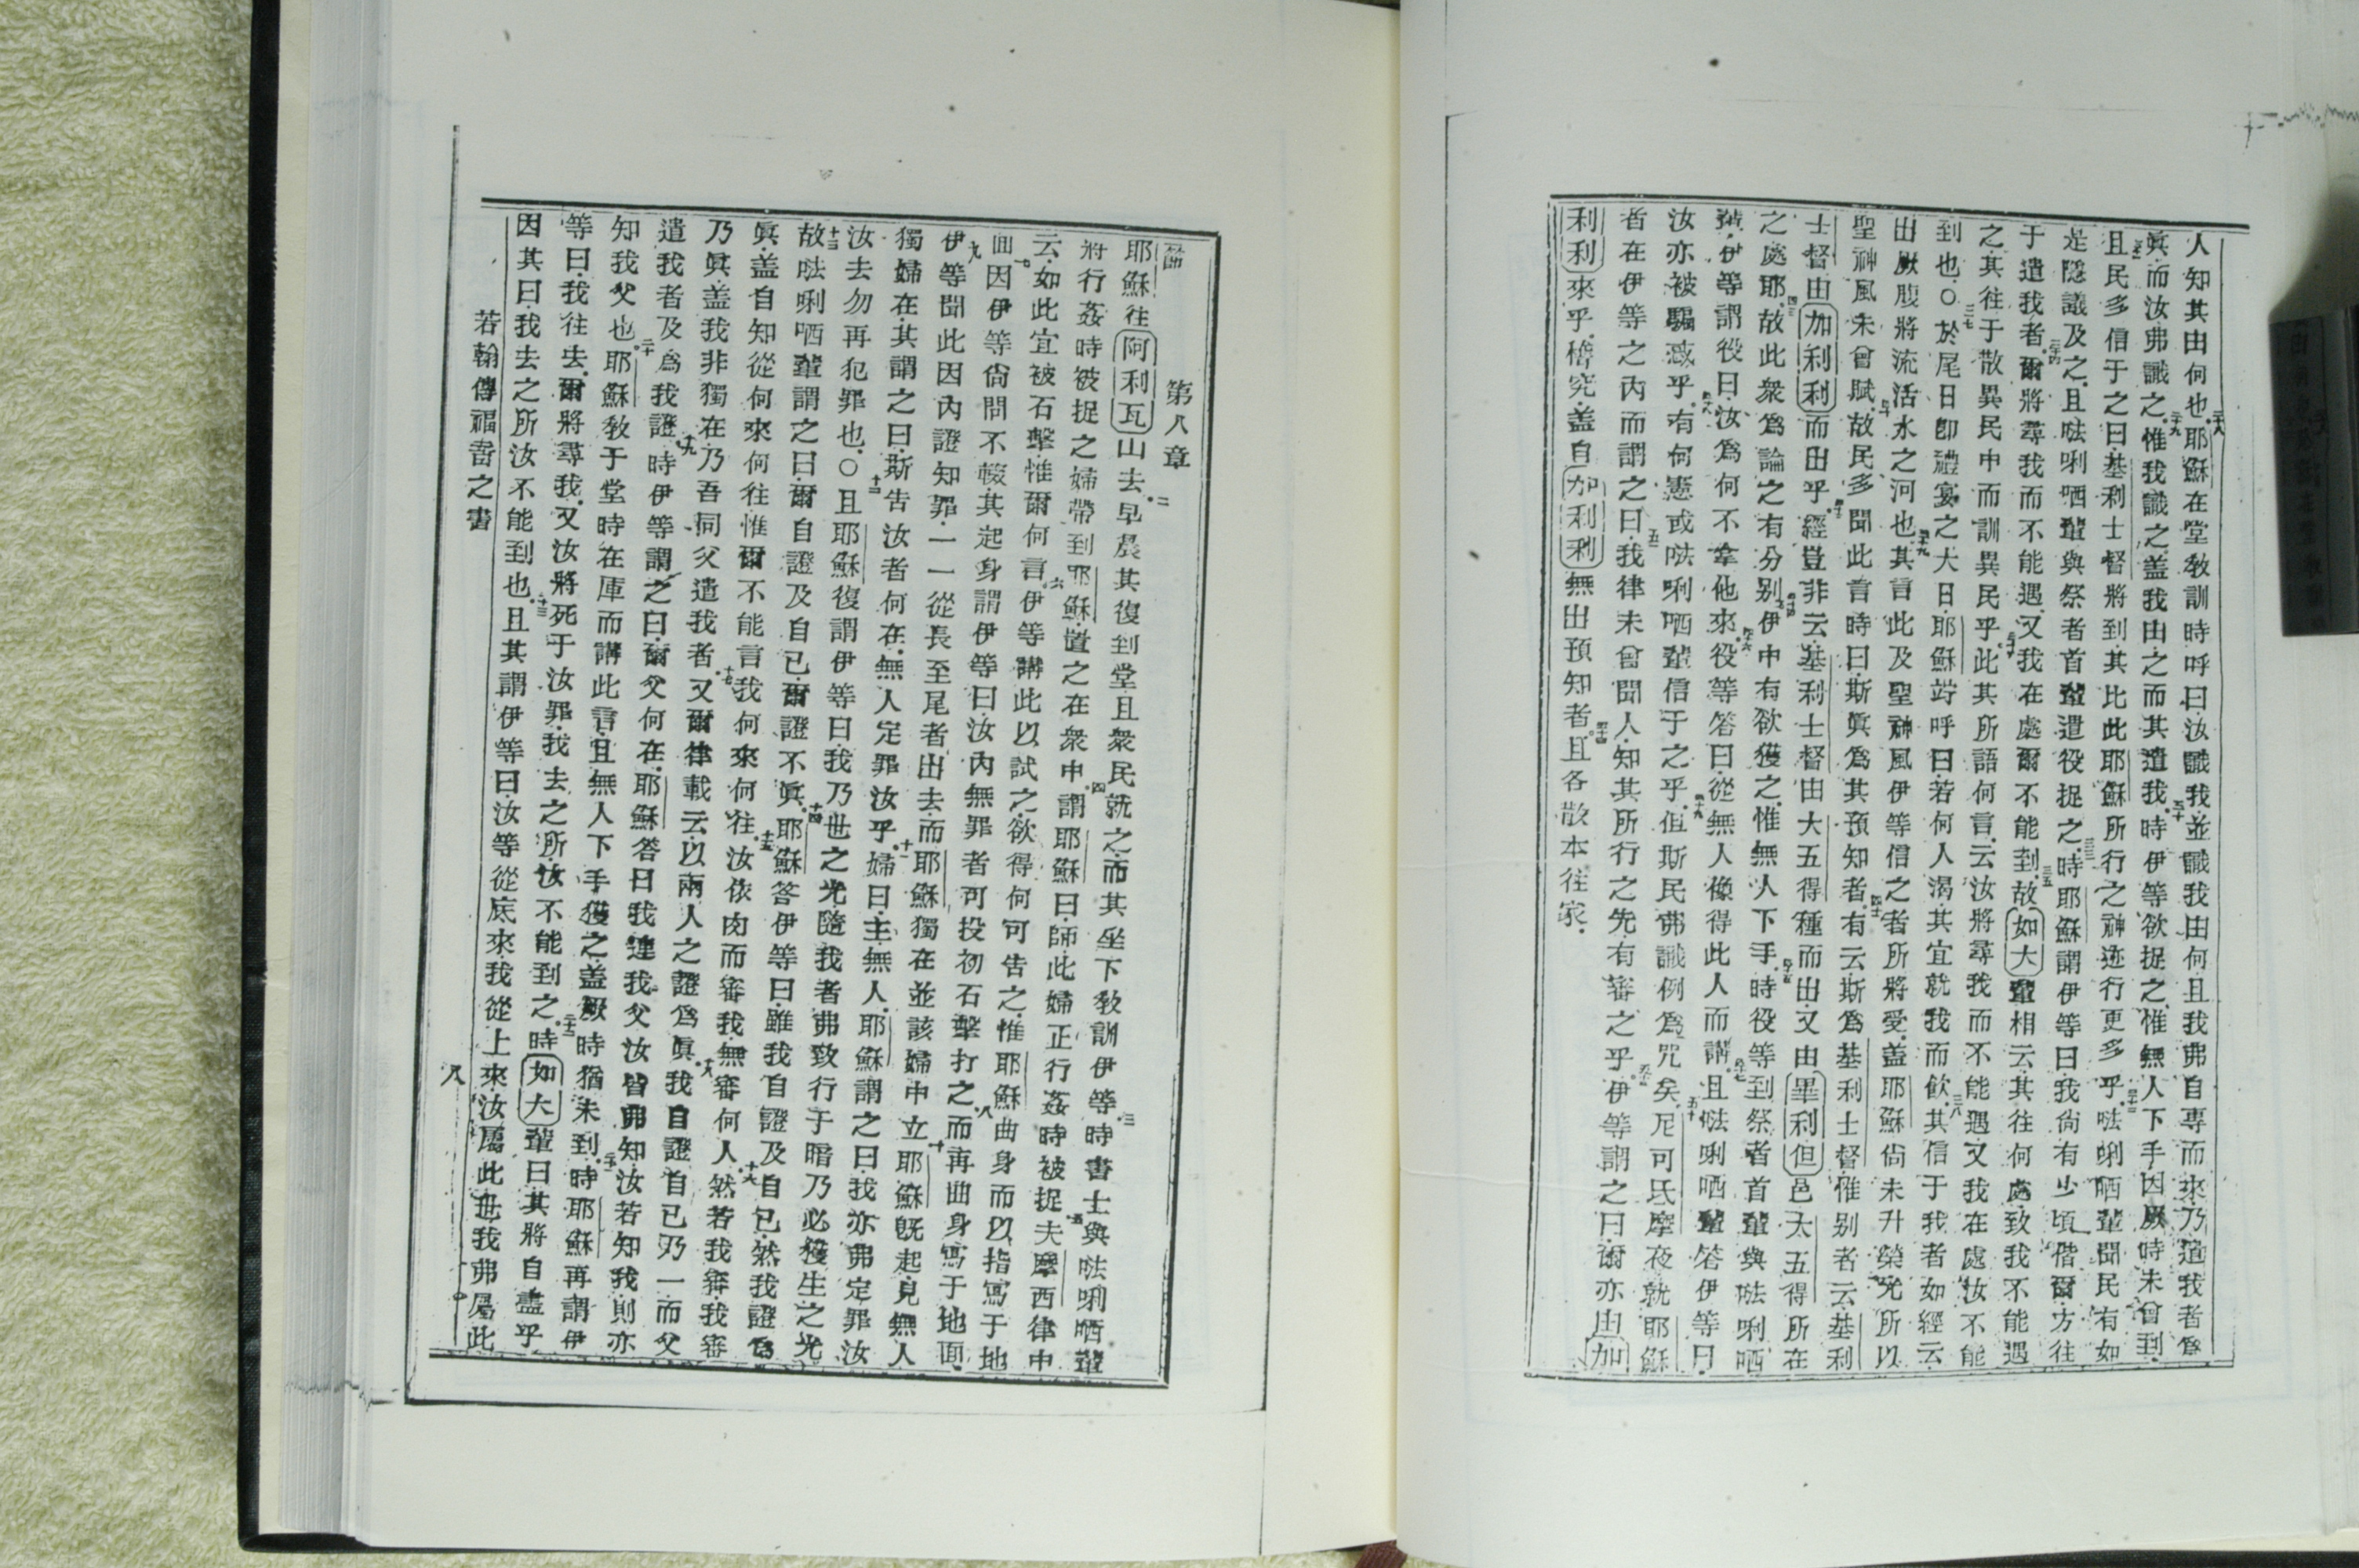 人知其由何也耶蘇在堂教訓時呼曰汝識我並識我由何且我弗自專而來乃遣我者爲
眞而汝弗識之惟我識之盖我由之而其遣我時伊等欲捉之惟無人下手因厥時未曾到
且民多信于之曰基利士督將到其比此耶穌所行之神迹行更多乎㕸唎哂輩聞民有如
是隱議及之且㕸唎哂輩與祭者首輩遣役捉之時耶穌謂伊等曰我尚有少頃偕爾方往
于遣我者爾將尋我而不能遇又我在處爾不能到故如大輩相云其往何處致我不能遇
之其往于散異民中而訓異民乎此其所語何言云汝將尋我而不能遇又我在處汝不能
到也○於尾日卽禮宴之大日耶穌竚呼曰若何人渴其宜就我而飲其信于我者如經云
出厥腹將流活水之河也其言此及聖神風伊等信之者所將受盖耶穌尚未升榮允所以
聖神風未曾賦故民多聞此言時曰斯眞爲其預知者有云斯爲基利士督惟别者云基利
士督由加利利而田乎經豈非云基利士督由大五得種而出又由畢利但邑大五得所在
之處耶故此衆爲論之有分别伊中有欲獲之惟無人下手時役等到祭者首輩與㕸唎哂
輩伊等謂役曰汝爲何不拿他來役等答曰從無人像得此人而講且㕸唎哂輩答伊等曰
汝亦被騙惑乎有何憲或㕸唎哂輩信于之乎但斯民弗識例爲咒矣尼可氐摩夜就耶穌
者在伊等之內而謂之曰我律未曾聞人知其所行之先有審之乎伊等謂之曰爾亦由加
利利來乎稽究盖自加利利無出預知者且各散本往家
第八章
耶穌往阿利瓦山去早晨其復到堂且衆民就之而其坐下教訓伊等時書士與㕸唎哂輩
將行姦時被捉之婦帶到耶穌置之在衆中謂耶穌曰師此婦正行姦時被捉夫摩西律中
云如此宜被石擊惟爾何言伊等講此以試之欲得何可告之惟耶穌曲身而以指寫于地
面因伊等尚問不輟其起身謂伊等曰汝內無罪者可投初石擊打之而再曲身寫于地面
伊等聞此因內證知罪一一從長至尾者出去而耶穌獨在並該婦中立耶穌旣起見無人
獨婦在其謂之曰斯告汝者何在無人定罪汝乎婦曰主無人耶穌謂之曰我亦弗定罪汝
汝去勿再犯罪也○且耶穌復謂伊等曰我乃世之光隨我者弗致行于暗乃必獲生之光
故㕸唎哂輩謂之曰爾自證及自己爾證不眞耶穌答伊等曰雖我自證及自己然我證爲
眞盖自知從何來何往惟爾不能言我何來何往汝依肉而審我無審何人然若我審我審
乃眞盖我非獨在乃吾同父遣我者又爾律載云以兩人之證爲眞我自證自己乃一而父
遣我者及爲我證時伊等謂之曰爾父何在耶穌答曰我連我父汝皆弗知汝若知我則亦
知我父也耶穌教于堂時在庫而講此言且無人下手獲之盖厥時猶未到時耶穌再謂伊
等曰我往去爾將尋我又汝將死于汝罪我去之所汝不能到之時如大輩曰其將自盡乎
因其曰我去之所汝不能到也且其謂伊等曰汝等從底來我從上來汝屬此世我弗屬此
若翰傳福音之書
八